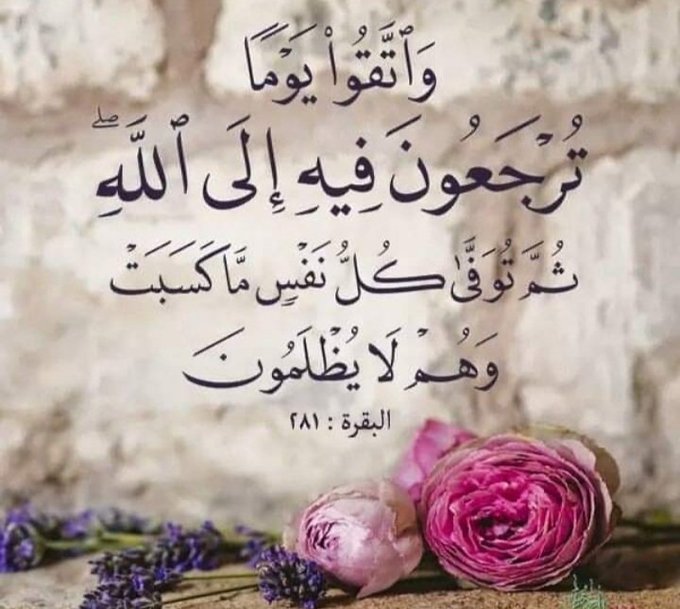 وَٱتَّقُوا۟ يَوْمًا
تُرْجَعُونَ فِيهِ إِلَى ٱللَّهِ ۖ
ثُمَّ تُوَفَّىٰ كُلُّ نَفْسٍ مَّا كَسَبَتْ
وَهُمْ لَا يُظْلَمُونَ
البقرة : ٢٨١